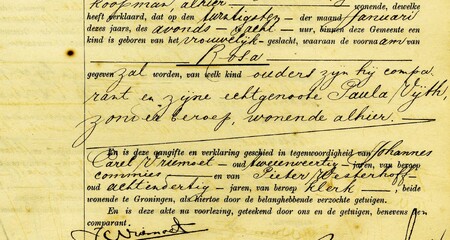 koopman, alhier — wonende, dewelke
heeft verklaard, dat op den twintigsten — der maand Januari
dezes jaars, des avonds — acht — uur, binnen deze Gemeente een
kind is geboren van het vrouwelijk - geslacht, waaraan de voornaam van
Rosa
gegeven zal worden, van welk kind ouders zijn hij compa
rant en zijne echtgenoote Paula
zonder beroep, wonende alhier. —
En is deze aangifte en verklaring geschied in tegenwoordigheid van Johannes
Carel Vriemoet — oud tweeenveertig — jaren, van beroep
commies — en van Pieter Westerhoff —
oud achtendertig — jaren, van beroep klerk —, beide
wonende te Groningen, als hiertoe door de belanghebbende verzocht getuigen.
En is deze akte na voorlezing, geteekend door ons en de getuigen, benevens den
comparant.
JCVriemoet